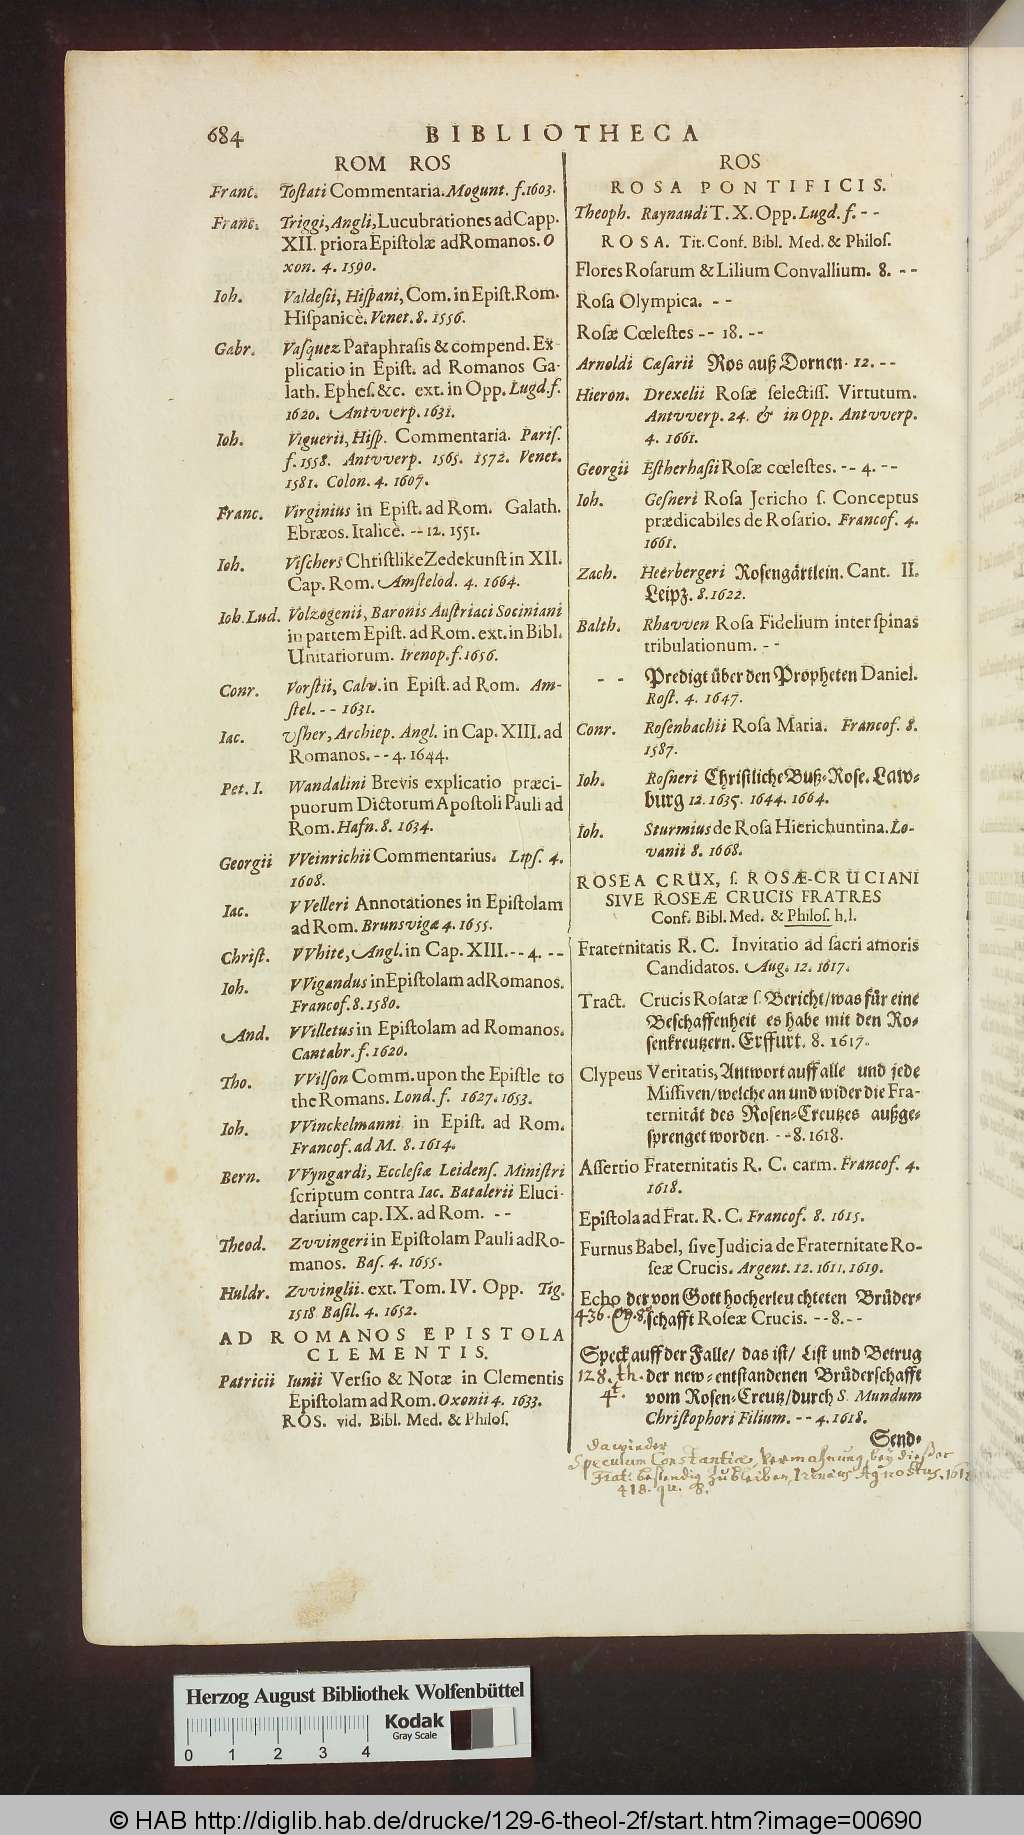 684 BIBLIOTHECA
ROM ROS
Franc. Toſtati Commentaria. Mogunt. f. 1603.
Franc. Triggi, Angli, Lucubrationes ad Capp.
XII. priora Epiſtolæ ad Romanos. O
xon. 4. 1590.
Ioh. Valdeſii, Hiſpani, Com. in Epiſt. Rom.
Hiſpanicè. Venet. 8. 1556.
Gabr. Vaſquez Paraphraſis & compend. Ex-
plicatio in Epiſt. ad Romanos Ga-
lath. Epheſ. &c. ext. in Opp. Lugd. f.
1620. Antvverp. 1631.
Ioh. Viguerii, Hiſp. Commentaria. Pariſ.
f. 1558. Antvverp. 1565. 1572. Venet.
1581. Colon. 4. 1607.
Franc. Virginius in Epiſt. ad Rom. Galath.
Ebræos. Italicè. -- 12. 1551.
Ioh. Viſchers Chriſtlike Zedekunſt in XII.
Cap. Rom. Amſtelod. 4. 1664.
Ioh. Lud. Volzogenii, Baronis Auſtriaci Sociniani
in partem Epiſt. ad Rom. ext. in Bibl.
Unitariorum. Irenop. f. 1656.
Conr. Vorſtii, Calv. in Epiſt. ad Rom. Am-
ſtel. -- 1631.
Iac. Uſher, Archiep. Angl. in Cap. XIII. ad
Romanos. -- 4. 1644.
Pet. I. Wandalini Brevis explicatio præci-
puorum Dictorum Apoſtoli Pauli ad
Rom. Hafn. 8. 1634.
Georgii VVeinrichii Commentarius. Lipſ. 4.
1608.
Iac. VVelleri Annotationes in Epiſtolam
ad Rom. Brunsvigæ 4. 1655.
Chriſt. VVhite, Angl. in Cap. XIII. -- 4. --
Ioh. VVigandus in Epiſtolam ad Romanos.
Francof. 8. 1580.
And. VVilletus in Epiſtolam ad Romanos.
Cantabr. f. 1620.
Tho. VVilſon Comm. upon the Epiſtle to
the Romans. Lond. f. 1627. 1653.
Ioh. VVinckelmanni in Epiſt. ad Rom.
Francof. ad M. 8. 1614.
Bern. VVyngardi, Eccleſiæ Leidenſ. Miniſtri
ſcriptum contra Iac. Batalerii Eluci-
darium cap. IX. ad Rom. --
Theod. Zvvingeri in Epiſtolam Pauli ad Ro-
manos. Baſ. 4. 1655.
Huldr. Zvvinglii. ext. Tom. IV. Opp. Tig.
1518 Baſil. 4. 1652.
AD ROMANOS EPISTOLA
CLEMENTIS.
Patricii Iunii Verſio & Notæ in Clementis
Epiſtolam ad Rom. Oxonii 4. 1633.
ROS. vid. Bibl. Med. & Philoſ.
ROS
ROSA PONTIFICIS.
Theoph. Raynaudi T. X. Opp. Lugd. f. --
ROSA. Tit. Conf. Bibl. Med. & Philoſ.
Flores Roſarum & Lilium Convallium. 8. --
Roſa Olympica. --
Roſæ Cœleſtes -- 18. --
Arnoldi Cæſarii Ros auß Dornen. 12. --
Hieron. Drexelii Roſæ ſelectiſſ. Virtutum.
Antvverp. 24. & in Opp. Antvverp.
4. 1661.
Georgii Eſtherhaſii Roſæ cœleſtes. -- 4. --
Ioh. Geſneri Roſa Jericho ſ. Conceptus
prædicabiles de Roſario. Francof. 4.
1661.
Zach. Heerbergeri Roſengärtlein. Cant. II.
Leipz. 8. 1622.
Balth. Rhavven Roſa Fidelium inter ſpinas
tribulationum. --
-- Predigt über den Propheten Daniel.
Roſt. 4. 1647.
Conr. Roſenbachii Roſa Maria. Francof. 8.
1587.
Ioh. Roſneri Chriſtliche Buß-Roſe. Law-
burg 12. 1635. 1644. 1664.
Ioh. Sturmius de Roſa Hierichuntina. Lo-
vanii 8. 1668.
ROSEA CRUX, ſ. ROSÆ-CRUCIANI
SIVE ROSEÆ CRUCIS FRATRES
Conf. Bibl. Med. & Philoſ. h. l.
Fraternitatis R. C. Invitatio ad ſacri amoris
Candidatos. Aug. 12. 1617.
Tract. Crucis Roſatæ ſ. Bericht/ was für eine
Beſchaffenheit es habe mit den Ro-
ſenkreutzern. Erffurt. 8. 1617.
Clypeus Veritatis, Antwort auff alle und jede
Miſſiven/ welche an und wider die Fra-
ternität des Roſen-Creutzes außge-
ſprenget worden. -- 8. 1618.
Aſſertio Fraternitatis R. C. carm. Francof. 4.
1618.
Epiſtola ad Frat. R. C. Francof. 8. 1615.
Furnus Babel, ſive Judicia de Fraternitate Ro-
ſeæ Crucis. Argent. 12. 1611. 1619.
Echo der von Gott hocherleuchteten Brüder-
ſchafft Roſeæ Crucis. -- 8. --
Speck auff der Falle/ das iſt/ Liſt und Betrug
128. th. der new-entſtandenen Brüderſchafft
4t. vom Roſen-Creutz/ durch S. Mundum
Chriſtophori Filium. -- 4. 1618.
Send-
dawieder
Speculum Constantiæ, Vermahnung bey dießer
Frat: bestendig zu bleiben, Irenæus Agnostus. 1618
418. qu. 8.
Herzog August Bibliothek Wolfenbüttel
Kodak
Gray Scale
0 1 2 3 4
© HAB http://diglib.hab.de/drucke/129-6-theol-2f/start.htm?image=00690